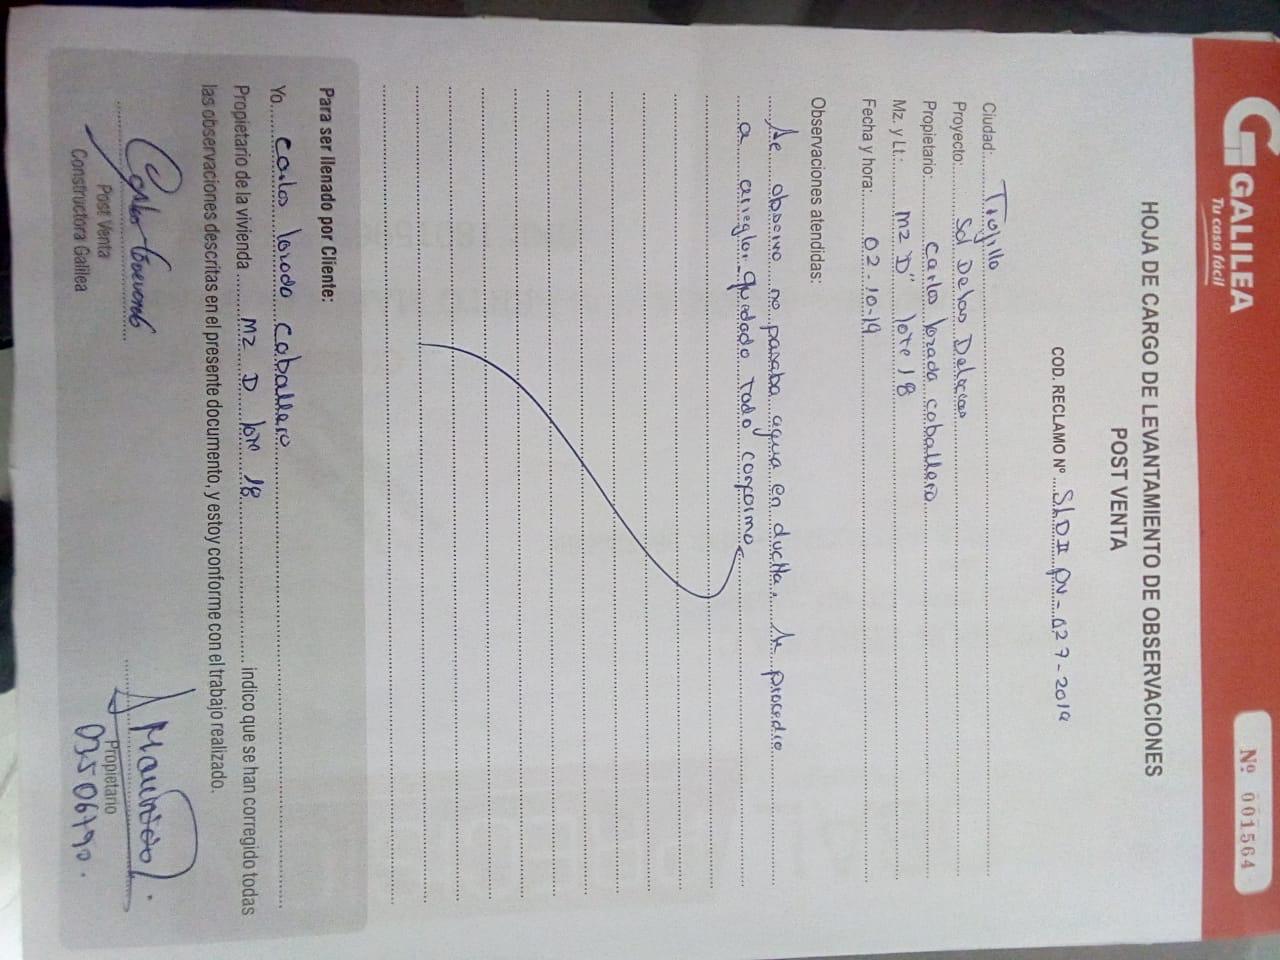 GALILEA
Tu casa fácil
Nº 001564
HOJA DE CARGO DE LEVANTAMIENTO DE OBSERVACIONES
POST VENTA
COD. RECLAMO Nº SLDII PV-027-2019
Ciudad: Trujillo
Proyecto: Sol De las Delicias
Propietario: Carlos lozada caballero
Mz. y Lt.: MZ "D" lote 18
Fecha y hora: 02-10-19
Observaciones atendidas:
Se observo no pasaba agua en ducha. Se procedio
a arreglar quedado todo conforme
Para ser llenado por Cliente:
Yo Carlos lozada caballero
Propietario de la vivienda MZ D lote 18 indico que se han corregido todas
las observaciones descritas en el presente documento, y estoy conforme con el trabajo realizado.
Post Venta
Constructora Galilea
Propietario